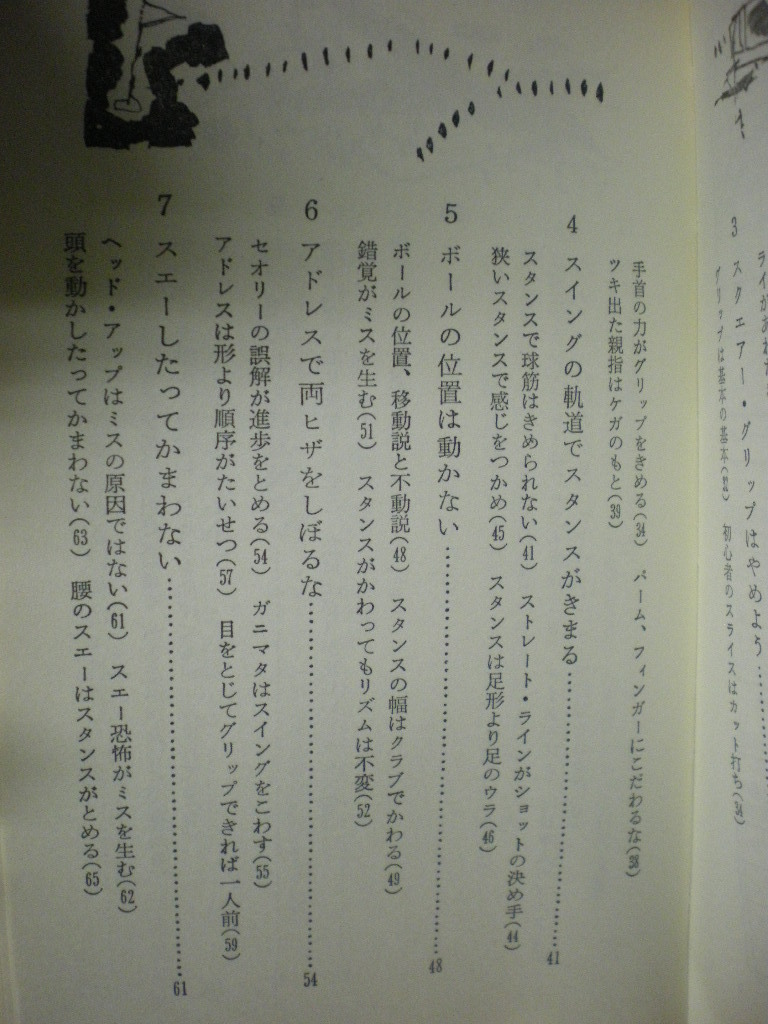 ライがあれ
3 スクエアー・グリップはやめよう…………
グリップは基本の基本(32) 初心者のスライスはカット打ち(34)
手首の力がグリップをきめる(34) パーム、フィンガーにこだわるな(38)
ツキ出た親指はケガのもと(39)
4 スイングの軌道でスタンスがきまる…………41
スタンスで球筋はきめられない(41) ストレート・ラインがショットの決め手(44)
狭いスタンスで感じをつかめ(45) スタンスは足形より足のウラ(46)
5 ボールの位置は動かない…………48
ボールの位置、移動説と不動説(48) スタンスの幅はクラブでかわる(49)
錯覚がミスを生む(51) スタンスがかわってもリズムは不変(52)
6 アドレスで両ヒザをしぼるな…………54
セオリーの誤解が進歩をとめる(54) ガニマタはスイングをこわす(55)
アドレスは形より順序がたいせつ(57) 目をとじてグリップできれば一人前(59)
7 スエーしたってかまわない…………61
ヘッド・アップはミスの原因ではない(61) スエー恐怖がミスを生む(62)
頭を動かしたってかまわない(63) 腰のスエーはスタンスがとめる(65)